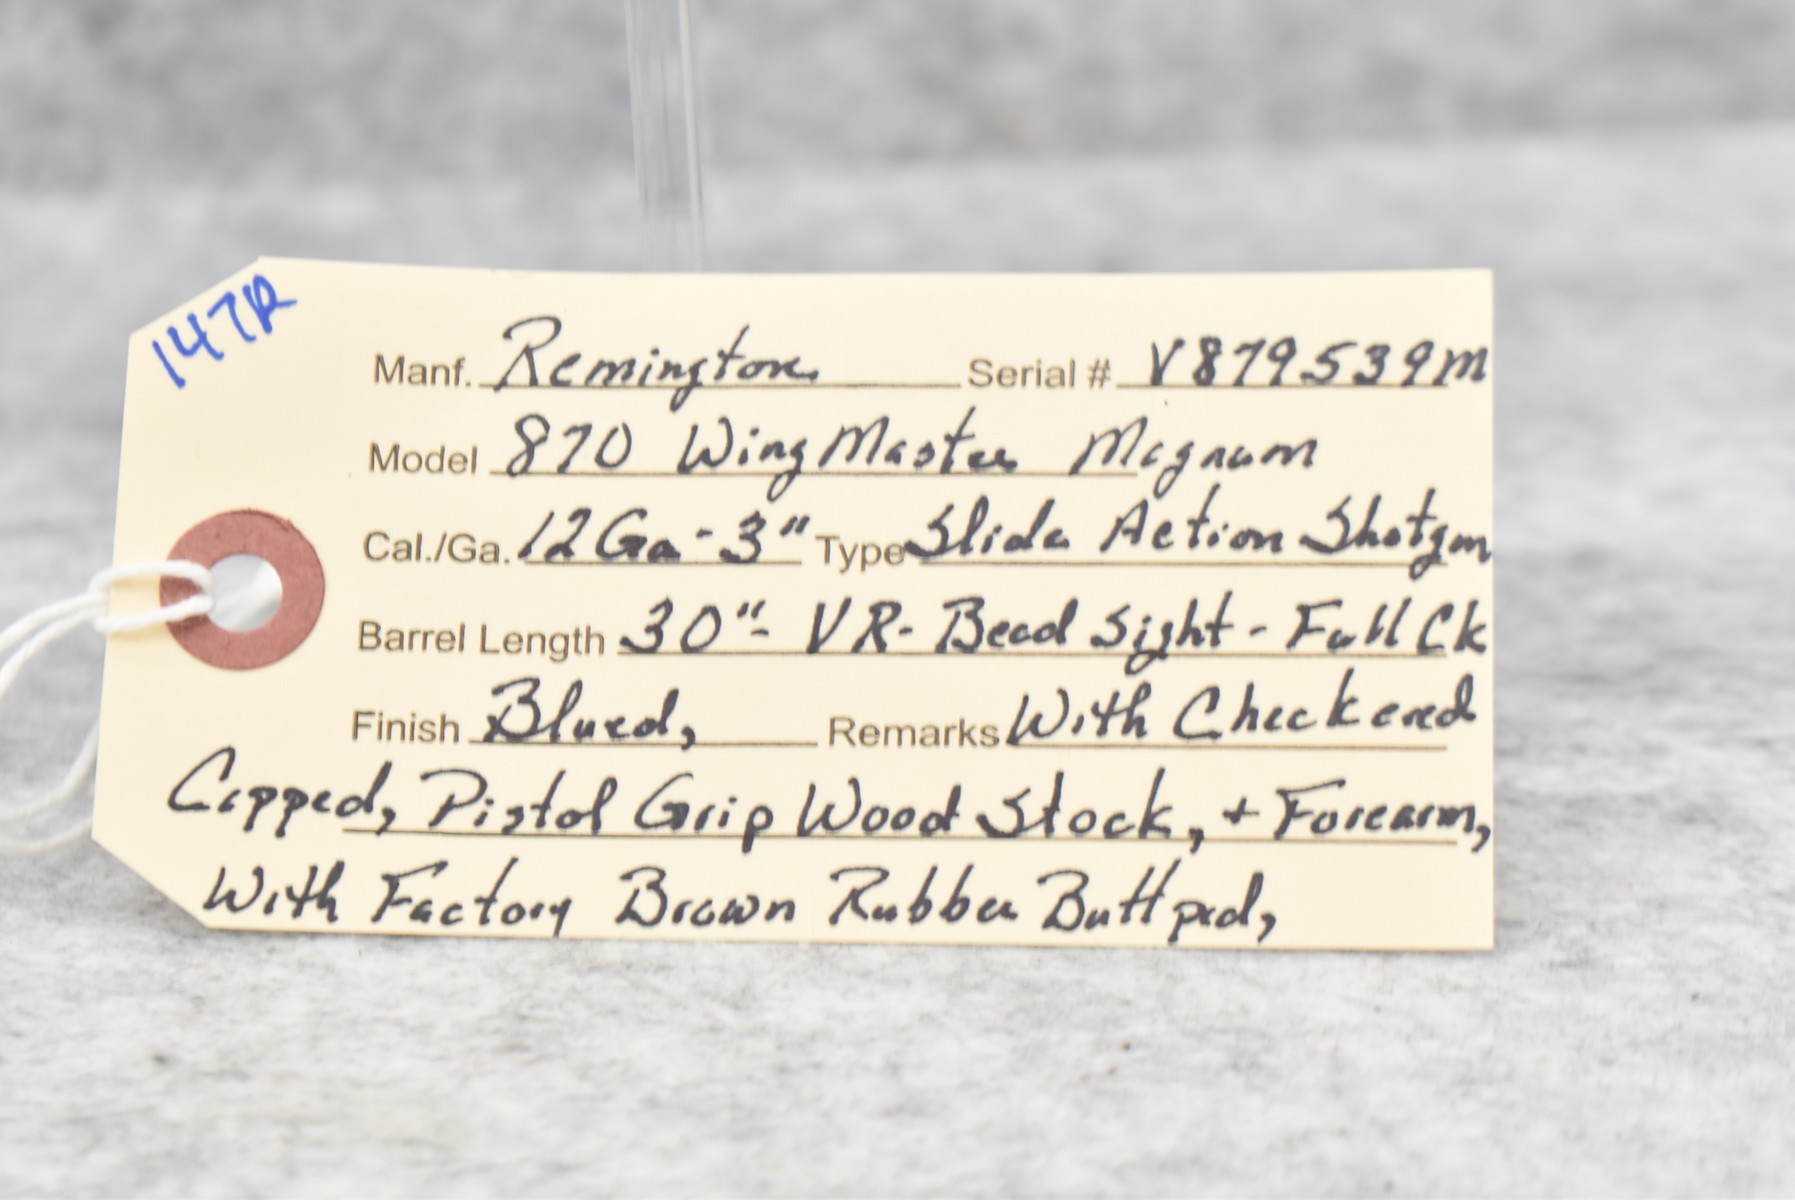 147R
Manf. Remington Serial # V879539M
Model 870 WingMaster Magnum
Cal./Ga. 12 Ga - 3" Type Slide Action Shotgun
Barrel Length 30" - VR - Bead Sight - Full Ck
Finish Blued, Remarks With Checkered
Capped, Pistol Grip Wood Stock, + Forearm,
With Factory Brown Rubber Buttpad,